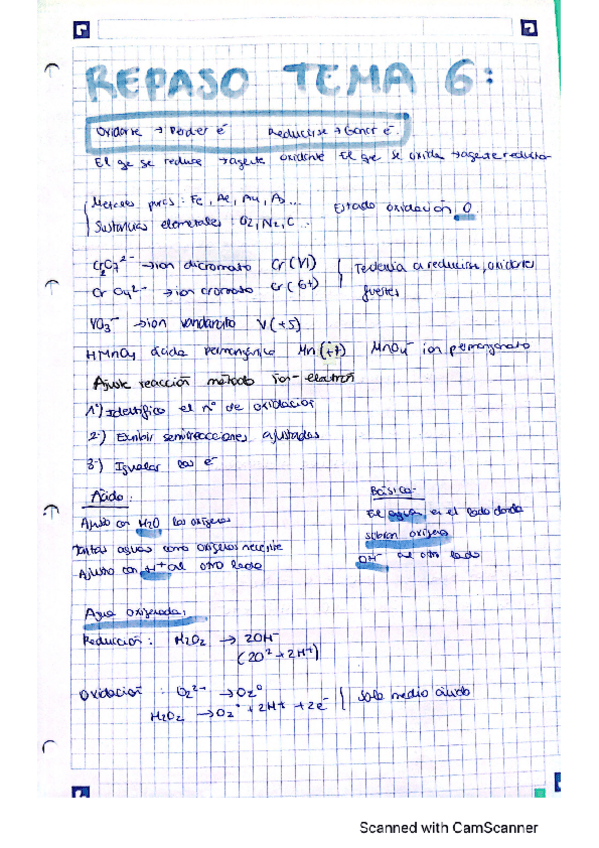 REPASO TEMA 6:
Oxidarse → Perder é Reducirse → Ganar é.
El qe se reduce → agente oxidante El qe se oxida → agente reductor
Metales puros: Fe, Ae, Au, Ag...
Sustancias elementales: O2, N2, C... Estado oxidación 0.
Cr2O7²⁻ → ion dicromato Cr(VI)
CrO4²⁻ → ion cromato Cr(6+) Tendencia a reducirse, oxidantes fuertes
VO3⁻ → ion vandanato V(+5)
HMnO4 ácido permangánico Mn(+7) MnO4⁻ ion permanganato
Ajuste reacción método ion-electrón
1º) Identifico el nº de oxidación
2º) Escribir semirreacciones ajustadas
3º) Igualar los é
Ácido: Básica-
Ajusto con H2O los oxígenos El agua en el lado donde
Tantas aguas como oxígenos necesite sobran oxígenos
Ajusto con H+ al otro lado OH⁻ al otro lado
Agua oxigenada:
Reducción: H2O2 → 2OH⁻
(2O² + 2H+)
Oxidación: O2²⁻ → O2⁰
H2O2 → O2⁰ + 2H+ + 2é Solo medio ácido
Scanned with CamScanner